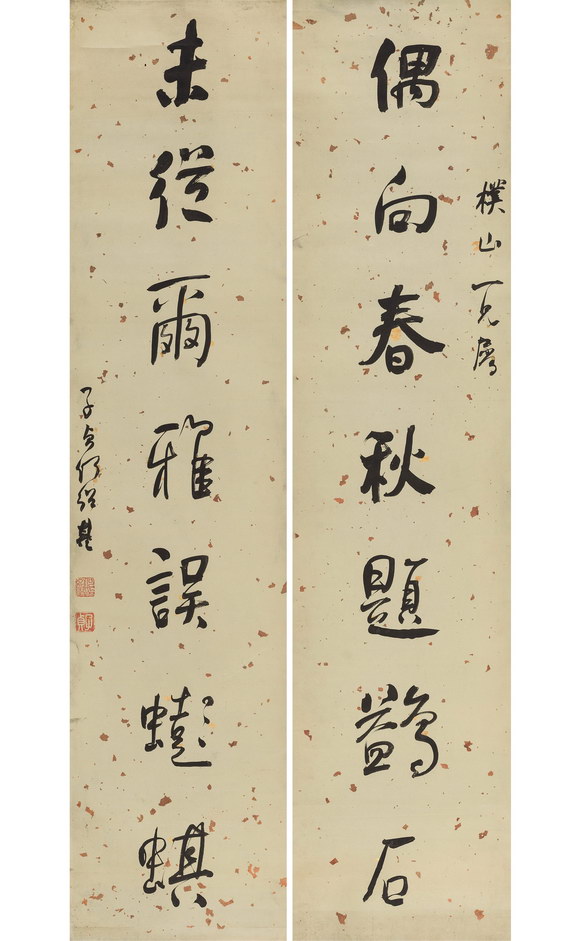 樸山一兄屬
偶向春秋題鷁石
未從爾雅誤蟛蜞
子貞何紹基
子貞